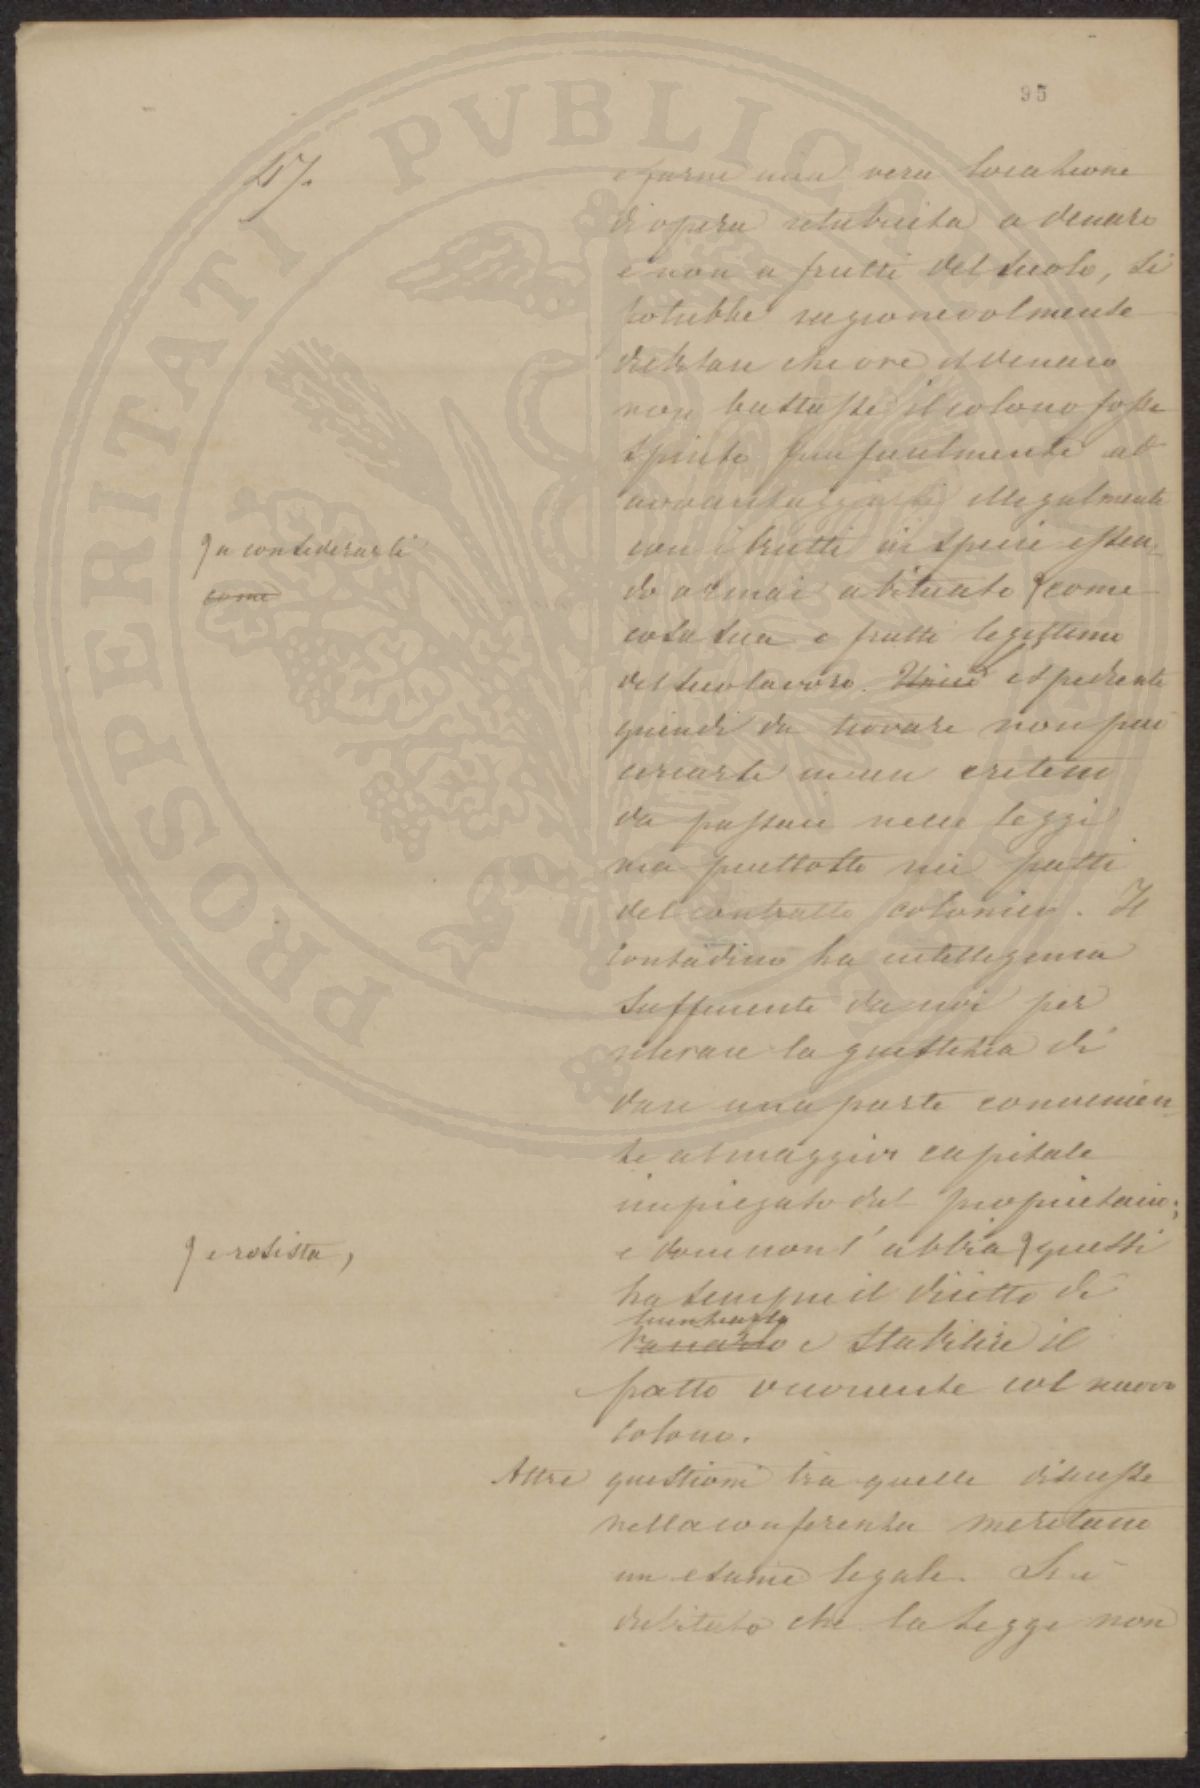 95
17.
e farne una vera locazione
di opera retribuita a denaro
e non a frutti del suolo, si
potrebbe ragionevolmente
dubitare che ove il denaro
non bastasse il colono fosse
spinto più facilmente ad
avvantaggiarsi illegalmente
con i frutti in specie essen-
do ormai abituato come
a considerarli
come
cosa sua e frutti legittimi
del suo lavoro. espediente
quindi da trovare non può
cercarsi in un criterio
da passare nelle leggi
ma piuttosto nei patti
del contratto colonico. Il
contadino ha intelligenza
sufficiente da noi per
rilevare la giustizia di
dare una parte convenien-
te al maggior capitale
impiegato dal proprietario;
e dove non l'abbia questi
e resista,
ha sempre il diritto di
e stabilire il
patto col nuovo
colono.
Altre questioni tra quelle discusse
nella conferenza meritano
un esame legale. Si è
dubitato che la legge non
PROSPERITATI PVBLICAE